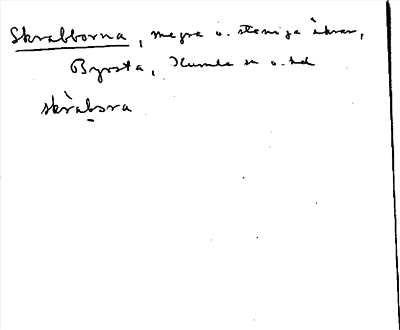 Skrabborna, magra o. steniga åkrar,
Byrsta, Kumla sn o. hd
skràbₒra